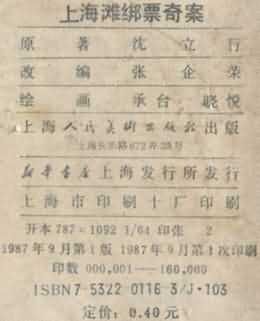 上海滩绑票奇案
原 著 沈 立 行
改 编 张 企 荣
绘 画 承台 晓悦
上海人民美術出版社出版
上海长乐路672弄33号
新华书店上海发行所发行
上海市印刷十厂印刷
开本787×1092 1/64 印张 2
1987年9月第1版 1987年9月第1次印刷
印数 000,001——160,000
ISBN7-5322-0116-3/J·103
定价：0.40元